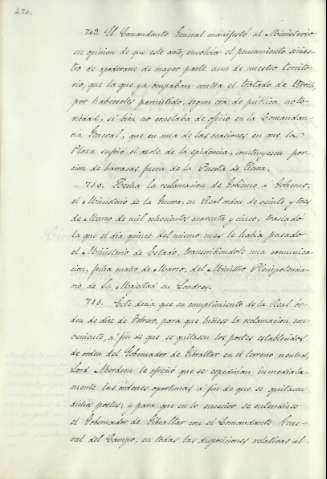 270.
713. El Comandante General manifestó al Ministerio
su opinion de que este acto, envolvia el pensamiento sinies-
tro de apoderarse de mayor parte aun de nuestro territo-
rio, que la que ya ocupaban contra el tratado de Utrech,
por habérseles permitido, segun era de pública noto-
riedad, si bien no constaba de oficio en la Comandan-
cia General, que en una de las ocasiones en que la
Plaza sufrió el azote de la epidemia, construyesen por-
cion de barracas fuera de la Puerta de Tierra.
714. Hecha la reclamacion de Gobierno á Gobierno,
el Ministerio de la Guerra, en Real órden de veinte y tres
de Marzo de mil ochocientos cuarenta y cinco, trasladó
la que el dia quince del mismo mes le habia pasado
el Ministerio de Estado, transcribiéndole una comunica-
cion, fecha de Marzo, del Ministro Plenipotencia-
rio, de la Magestad en Londres.
715. Este decia que en cumplimiento de la Real ór-
den de diez de Febrero, para que hiciese la reclamacion con-
veniente, á fin de que se quitasen los postes establecidos
de órden del Gobernador de Gibraltar en el terreno neutral,
Lord Aberdeen le ofició que se expedirian inmediata-
mente las órdenes oportunas á fin de que se quitasen
dichos postes; y para que en lo sucesivo se entendiese
el Gobernador de Gibraltar con el Comandante Gene-
ral del Campo, en todas las disposiciones relativas al